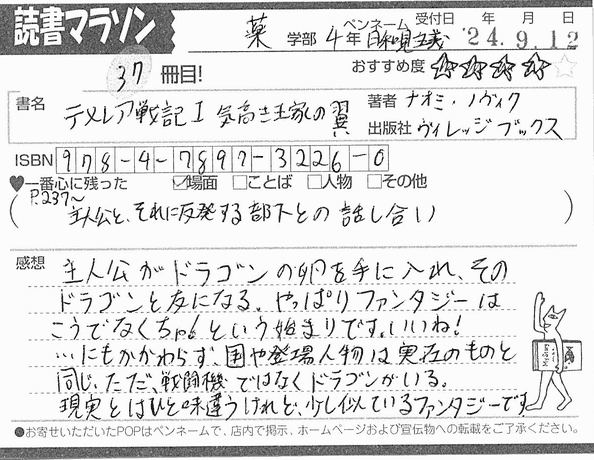 読書マラソン
薬 学部 4年 ペンネーム 受付日 '24.9.12 年 月 日
37 冊目! おすすめ度 ★★★★☆
書名 テメレア戦記I 気高き王家の翼
著者 ナオミ・ノヴィク
出版社 ヴィレッジブックス
ISBN 978-4-7897-3226-0
♥一番心に残った ☑場面 □ことば □人物 □その他
(P.237〜 主人公と、それに反発する部下との話し合い)
感想
主人公がドラゴンの卵を手に入れ、その
ドラゴンと友になる。やっぱりファンタジーは
こうでなくちゃという始まりです。いいね!
…にもかかわらず、国や登場人物は実在のものと
同じ、ただ、戦闘機ではなくドラゴンがいる。
現実とはひと味違うけれど、少し似ているファンタジーです
●お寄せいただいたPOPはペンネームで、店内で掲示、ホームページおよび宣伝物への転載をご了承ください。